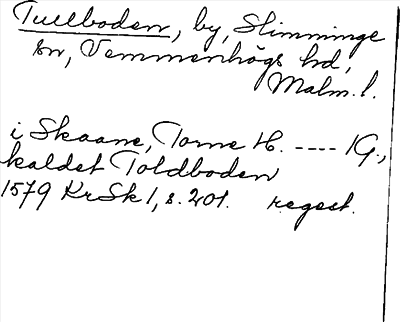 Tullboden, by, Slimminge
sn, Vemmenhögs hd,
Malm. l.
i Skaane, Torne H. ---- 1G.,
kaldet Toldboden
1579 KrSk 1, s. 201. regest.